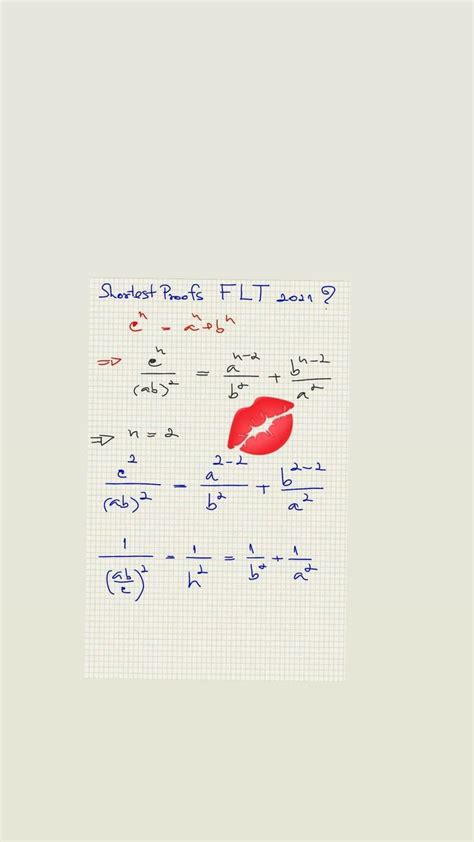 Shortest Proofs FLT 2021 ?
eⁿ = aⁿ+bⁿ
⇒ eⁿ/(ab)² = aⁿ⁻²/b² + bⁿ⁻²/a²
⇒ n = 2
e²/(ab)² = a²⁻²/b² + b²⁻²/a²
1/(ab/e)² = 1/h² = 1/b² + 1/a²